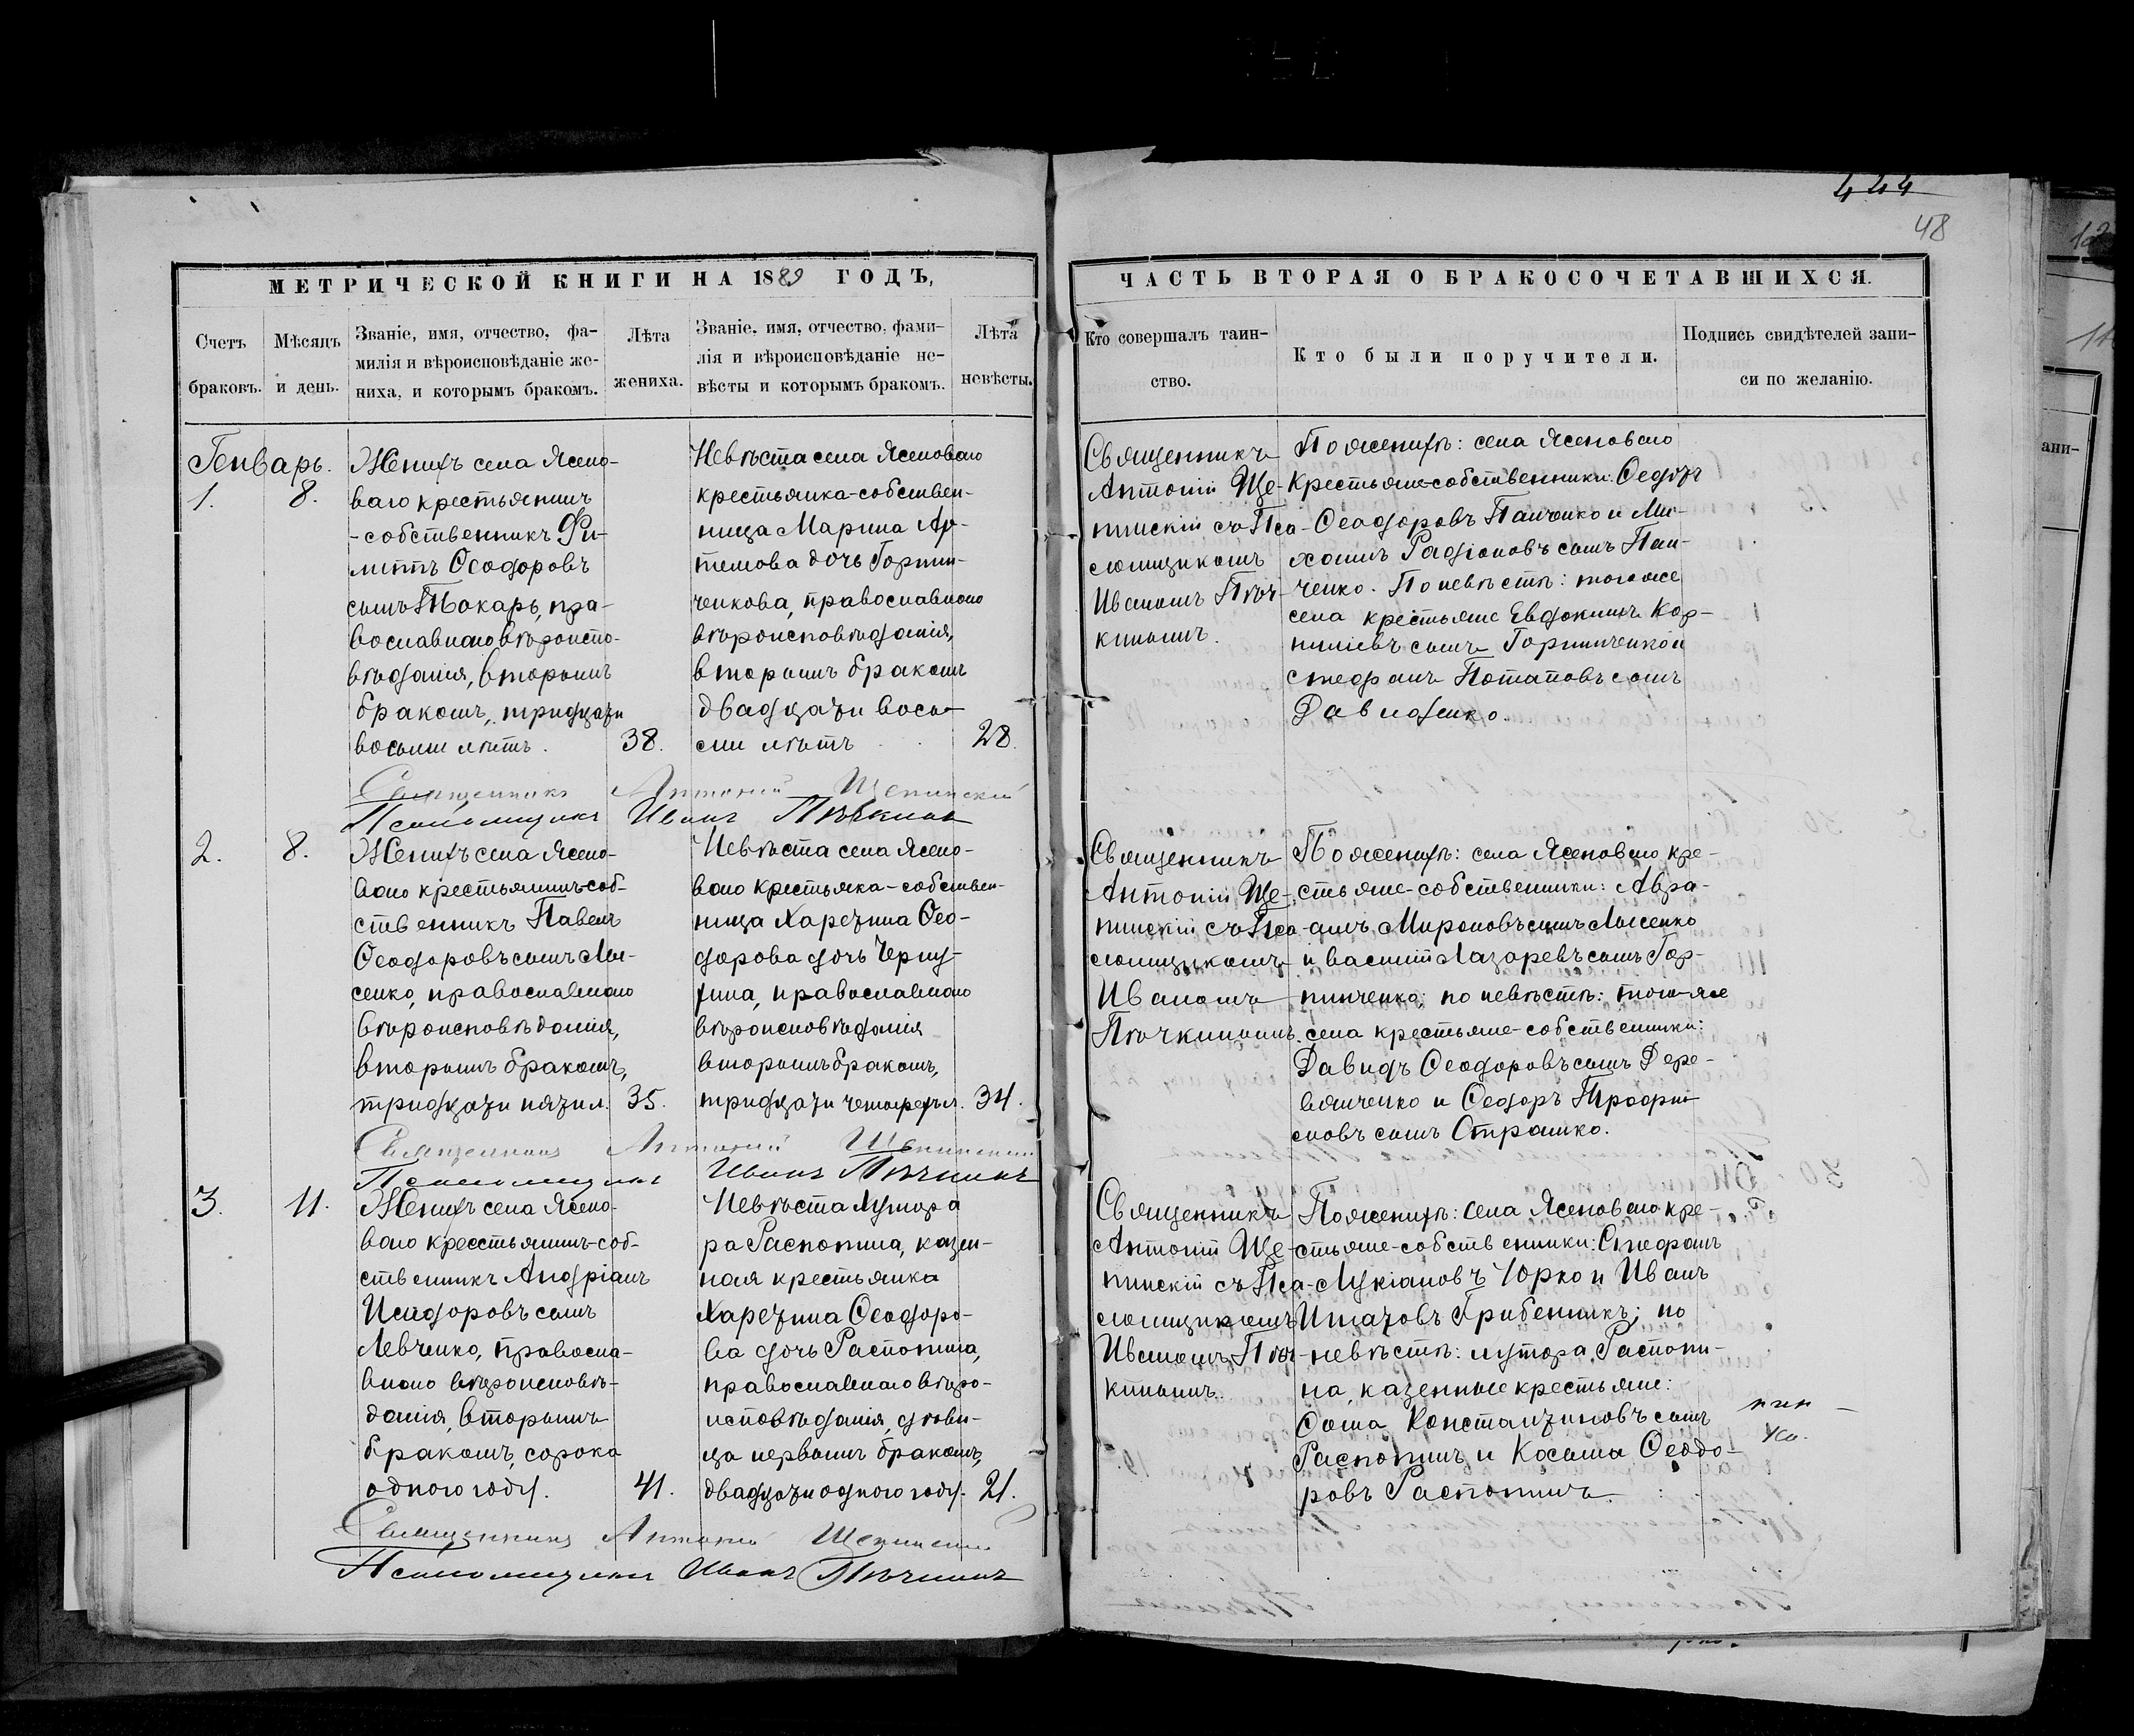 444
48
МЕТРИЧЕСКОЙ КНИГИ НА 1889 ГОДЪ,
Счетъ браковъ.
Мѣсяцъ и день.
Званіе, имя, отчество, фа-
милія и вѣроисповѣданіе же-
ниха, и которымъ бракомъ.
Лѣта жениха.
Званіе, имя, отчество, фами-
лія и вѣроисповѣданіе не-
вѣсты и которымъ бракомъ.
Лѣта невѣсты.
Генварь.
1.
8.
Женихъ села Ясено-
ваго крестьянинъ
-собственникъ Фи-
липпъ Ѳеодоровъ
сынъ Токарь, пра-
вославнаго вѣроиспо-
вѣданія, вторымъ
бракомъ, тридцати
восьми лѣтъ.
38.
Невѣста села Ясеноваго
крестьянка-собствен-
ница Марина Ар-
темова дочь Горпин-
ченкова, православнаго
вѣроисповѣданія,
вторымъ бракомъ
двадцати вось-
ми лѣтъ
28.
Священникъ Антоній Щепинскій
Псаломщикъ Иванъ Пѣчкинъ
2.
8.
Женихъ села Ясено-
ваго крестьянинъ соб-
ственникъ Павелъ
Ѳеодоровъ сынъ Лы-
сенко, православнаго
вѣроисповѣданія,
вторымъ бракомъ,
тридцати пяти л.
35.
Невѣста села Ясено-
ваго крестьянка-собствен-
ница Харетина Ѳео-
дорова дочь Черну-
хина, православнаго
вѣроисповѣданія
вторымъ бракомъ,
тридцати четырехъ л.
34.
Священникъ Антоній Щепинскій
Псаломщикъ Иванъ Пѣчкинъ
3.
11.
Женихъ села Ясено-
ваго креестьянинъ-соб-
ственникъ Андріанъ
Исидоровъ сынъ
Левченко, правосла-
внаго вѣроисповѣ-
данія, вторымъ
бракомъ, сорока
одного году.
41.
Невѣста Хутора
ра Распопина, казен-
ная крестьянка
Харетина Ѳеодоро-
ва дочь Распопина,
православнаго вѣро-
исповѣданія, дѣви-
ца первымъ бракомъ,
двадцати одного году.
21.
Священникъ Антоній Щепинскій
Псаломщикъ Иванъ Пѣчкинъ
ЧАСТЬ ВТОРАЯ О БРАКОСОЧЕТАВШИХСЯ.
Кто совершалъ таин-
ство.
Кто были поручители.
Подпись свидѣтелей запи-
си по желанію.
Священникъ
Антоній Ще-
пинскій съ Пса-
ломщикомъ
Иваномъ Пѣч-
кинымъ.
По женихѣ: села Ясеноваго
Крестьяне-собственники: Ѳедоръ
Ѳеодоровъ Панченко и Ми-
хаилъ Радіоновъ сынъ Пан-
ченко. По невѣстѣ: того же
села крестьяне Евдокимъ Кор-
ниліевъ сынъ Горпинченко и
Стефанъ Потаповъ сынъ
Давиденко.
Священникъ
Антоній Ще-
пинскій съ Пса-
ломщикомъ
Иваномъ
Пѣчкинымъ.
По женихѣ: села Ясеноваго кре-
стьяне-собственники: Авра-
амъ Мироновъ сынъ Лысенко
и Василій Лазаревъ сынъ Гор-
пинченко; по невѣстѣ: того-же
села крестьяне-собственники:
Давидъ Ѳеодоровъ сынъ Дере-
вянченко и Ѳеодоръ Трофи-
мовъ сынъ Страшко.
Священникъ
Антоній Ще-
пинскій съ Пса-
ломщикомъ
Иваномъ Пѣч-
кинымъ.
По женихѣ: села Ясеноваго кре-
стьяне-собственники: Стефанъ
Лукіановъ Юрко и Иванъ
Игнатовъ Грибенникъ; по
невѣстѣ: хутора Распопи-
на казенные крестьяне:
Ѳома Константиновъ сынъ
Распопинъ и Косьма Ѳеодо-
ровъ Распопинъ.